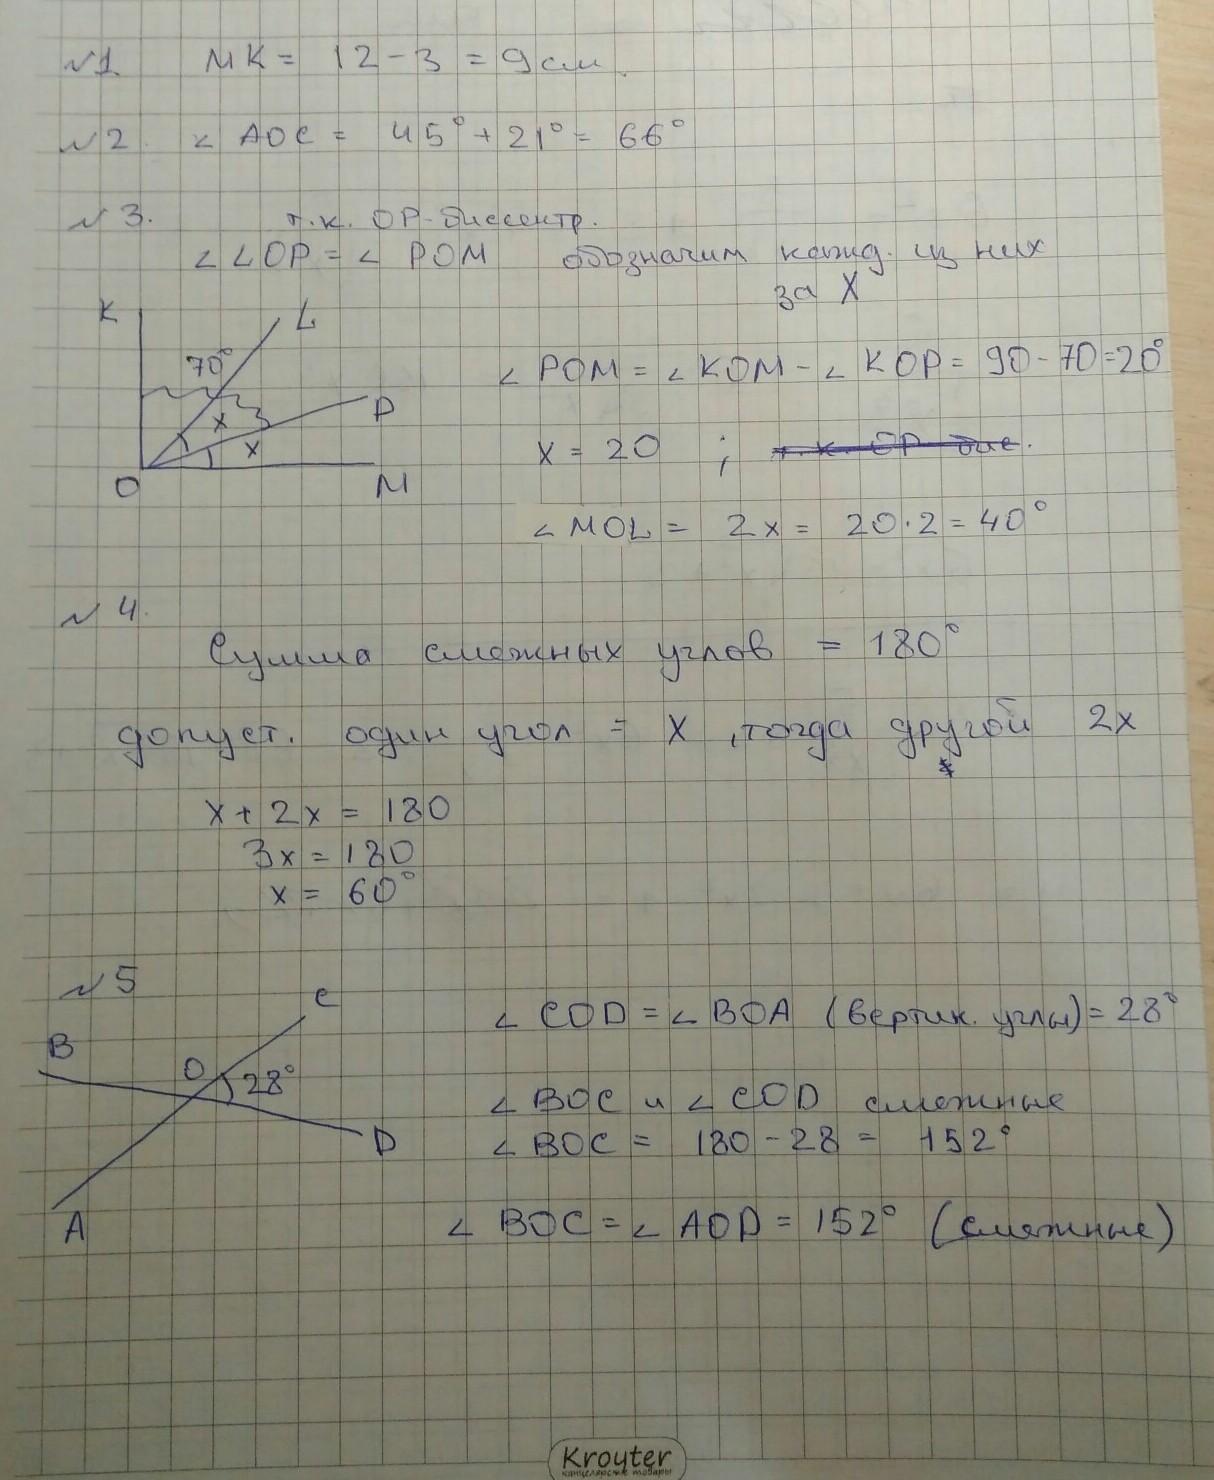 №1 МК = 12 - 3 = 9см.
№2. ∠ АОС = 45° + 21° = 66°
№3. т.к. ОР-биссектр.
∠ LOP = ∠ POM обозначим кажд. из них
за X
K L 70° x x P O M
∠ POM = ∠ KOM - ∠ KOP = 90 - 70 = 20°
x = 20 ; т.к. ОР бис.
∠ MOL = 2x = 20·2 = 40°
№4.
Сумма смежных углов = 180°
допуст. один угол = X, тогда другой 2x
x + 2x = 180
3x = 180
x = 60°
№5
B C O 28° D A
∠ COD = ∠ BOA (вертик. углы) = 28°
∠ BOC и ∠ COD смежные
∠ BOC = 180 - 28 = 152°
∠ BOC = ∠ AOD = 152° (смежные)
Kroyter
канцелярские товары